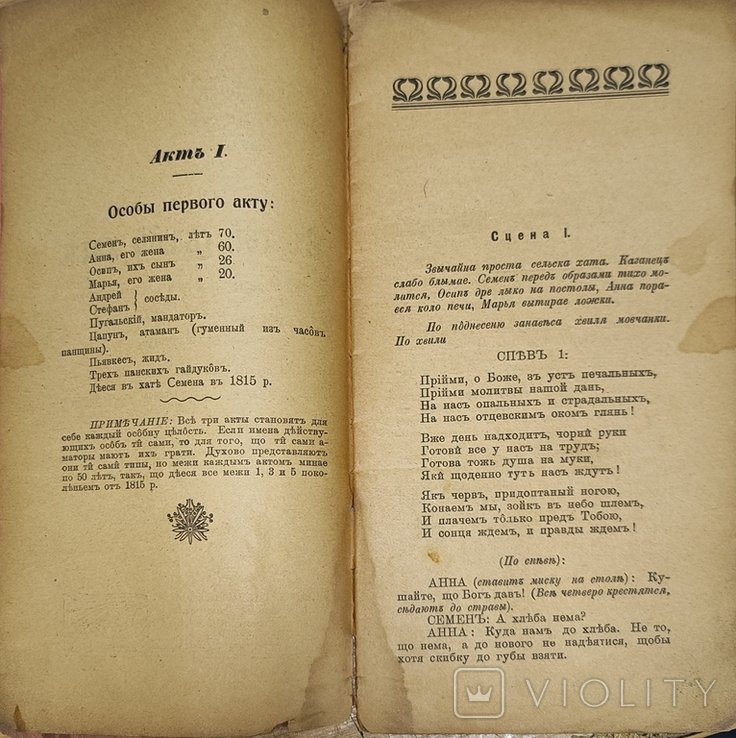 Актъ I.
Особы первого акту:
Семенъ, селянин, лѣтъ 70.
Анна, его жена „ 60.
Осипъ, ихъ сын „ 26
Марья, его жена „ 20.
Андрей
Стефан } сосѣды.
Пугальскій, мандаторъ.
Цапунъ, атаман (гуменный изъ часо̂въ
панщины).
Пьявкесъ, жид.
Трехъ панских гайдуко̂въ.
Дѣеся въ хатѣ Семена въ 1815 р.
ПРИМѢЧАНІЕ: Всѣ три акты становятъ для
себе каждый особо̂ну цѣлость. Если имена дѣйству-
ющихъ осо̂бъ тй̂ сами, то для того, що тй̂ сами а-
маторы мают ихъ грати. Духово представляют
они тй̂ самй̂ типы, но межи каждым актом минае
по 50 лѣтъ, такъ, що дѣеся все межи 1, 3 и 5 поко-
лѣньем от 1815 р.
Сцена I.
Звычайна проста сельска хата. Каганецъ
слабо блымае. Семен передъ образами тихо мо-
лится, Осипъ дре лыко на постолы, Анна пора-
еся коло печи, Марья вытирае ложки.
По пдднесеню занавѣса хвиля мовчанки.
По хвили
СПѢВЪ 1:
Прійми, о Боже, зъ устъ печальныхъ,
Прійми молитвы нашой дань,
На насъ опальных и страдальныхъ,
На насъ отцевским оком глянь!
Вже день надходитъ, чорнй̂ руки
Готовй̂ все у насъ на трудъ;
Готова тожь душа на муки,
Якй̂ щоденно тутъ насъ ждутъ!
Якъ червъ, придоптаный ногою,
Конаем мы, зойкъ въ небо шлемъ,
И плачем то̂лько предъ Тобою,
И сонця ждемъ, и правды ждемъ!
(По спѣвѣ):
АННА (ставитъ миску на столъ): Ку-
шайте, що Богъ давъ! (Всѣ четверо крестятся,
сѣдаютъ до стравы).
СЕМЕНЪ: А хлѣба нема?
АННА: Куда намъ до хлѣба. Не то,
що нема, а до нового не надѣятися, щобы
хотя скибку до губы взяти.
VIOLITY